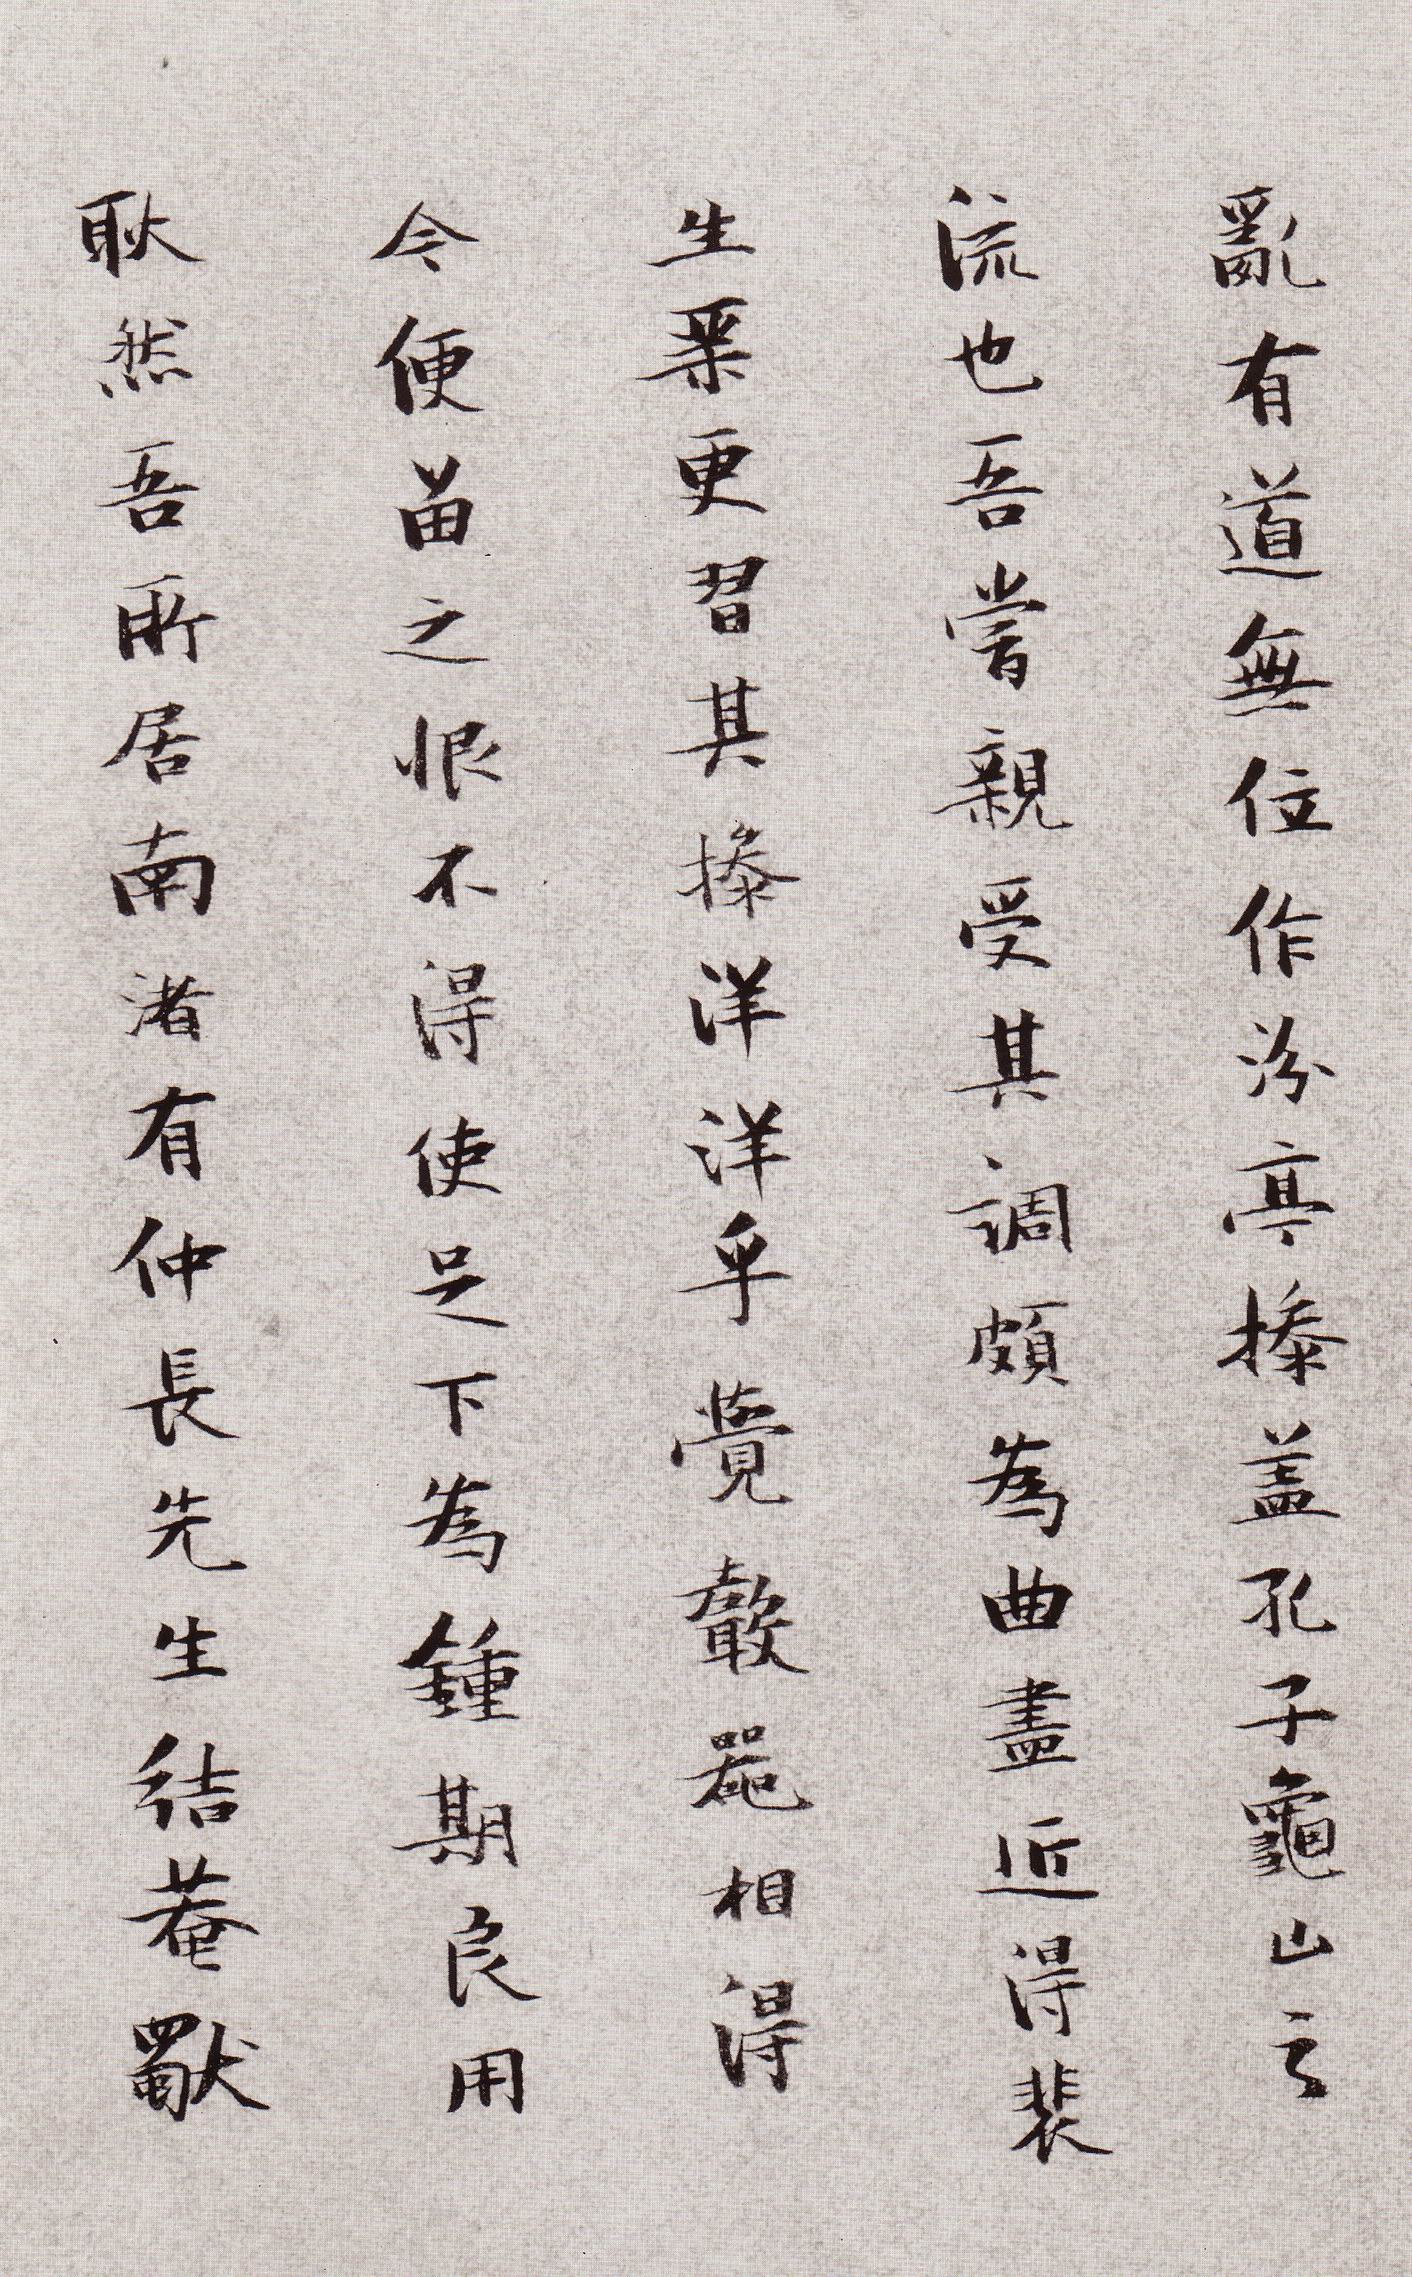 亂有道無位作汾亭操盖孔子龜山之
流也吾嘗親受其調頗為曲盡近得裴
生琹更習其操洋洋乎覺聲器相得
今便留之恨不得使足下為鍾期良用
耿然吾所居南渚有仲長先生結菴獨